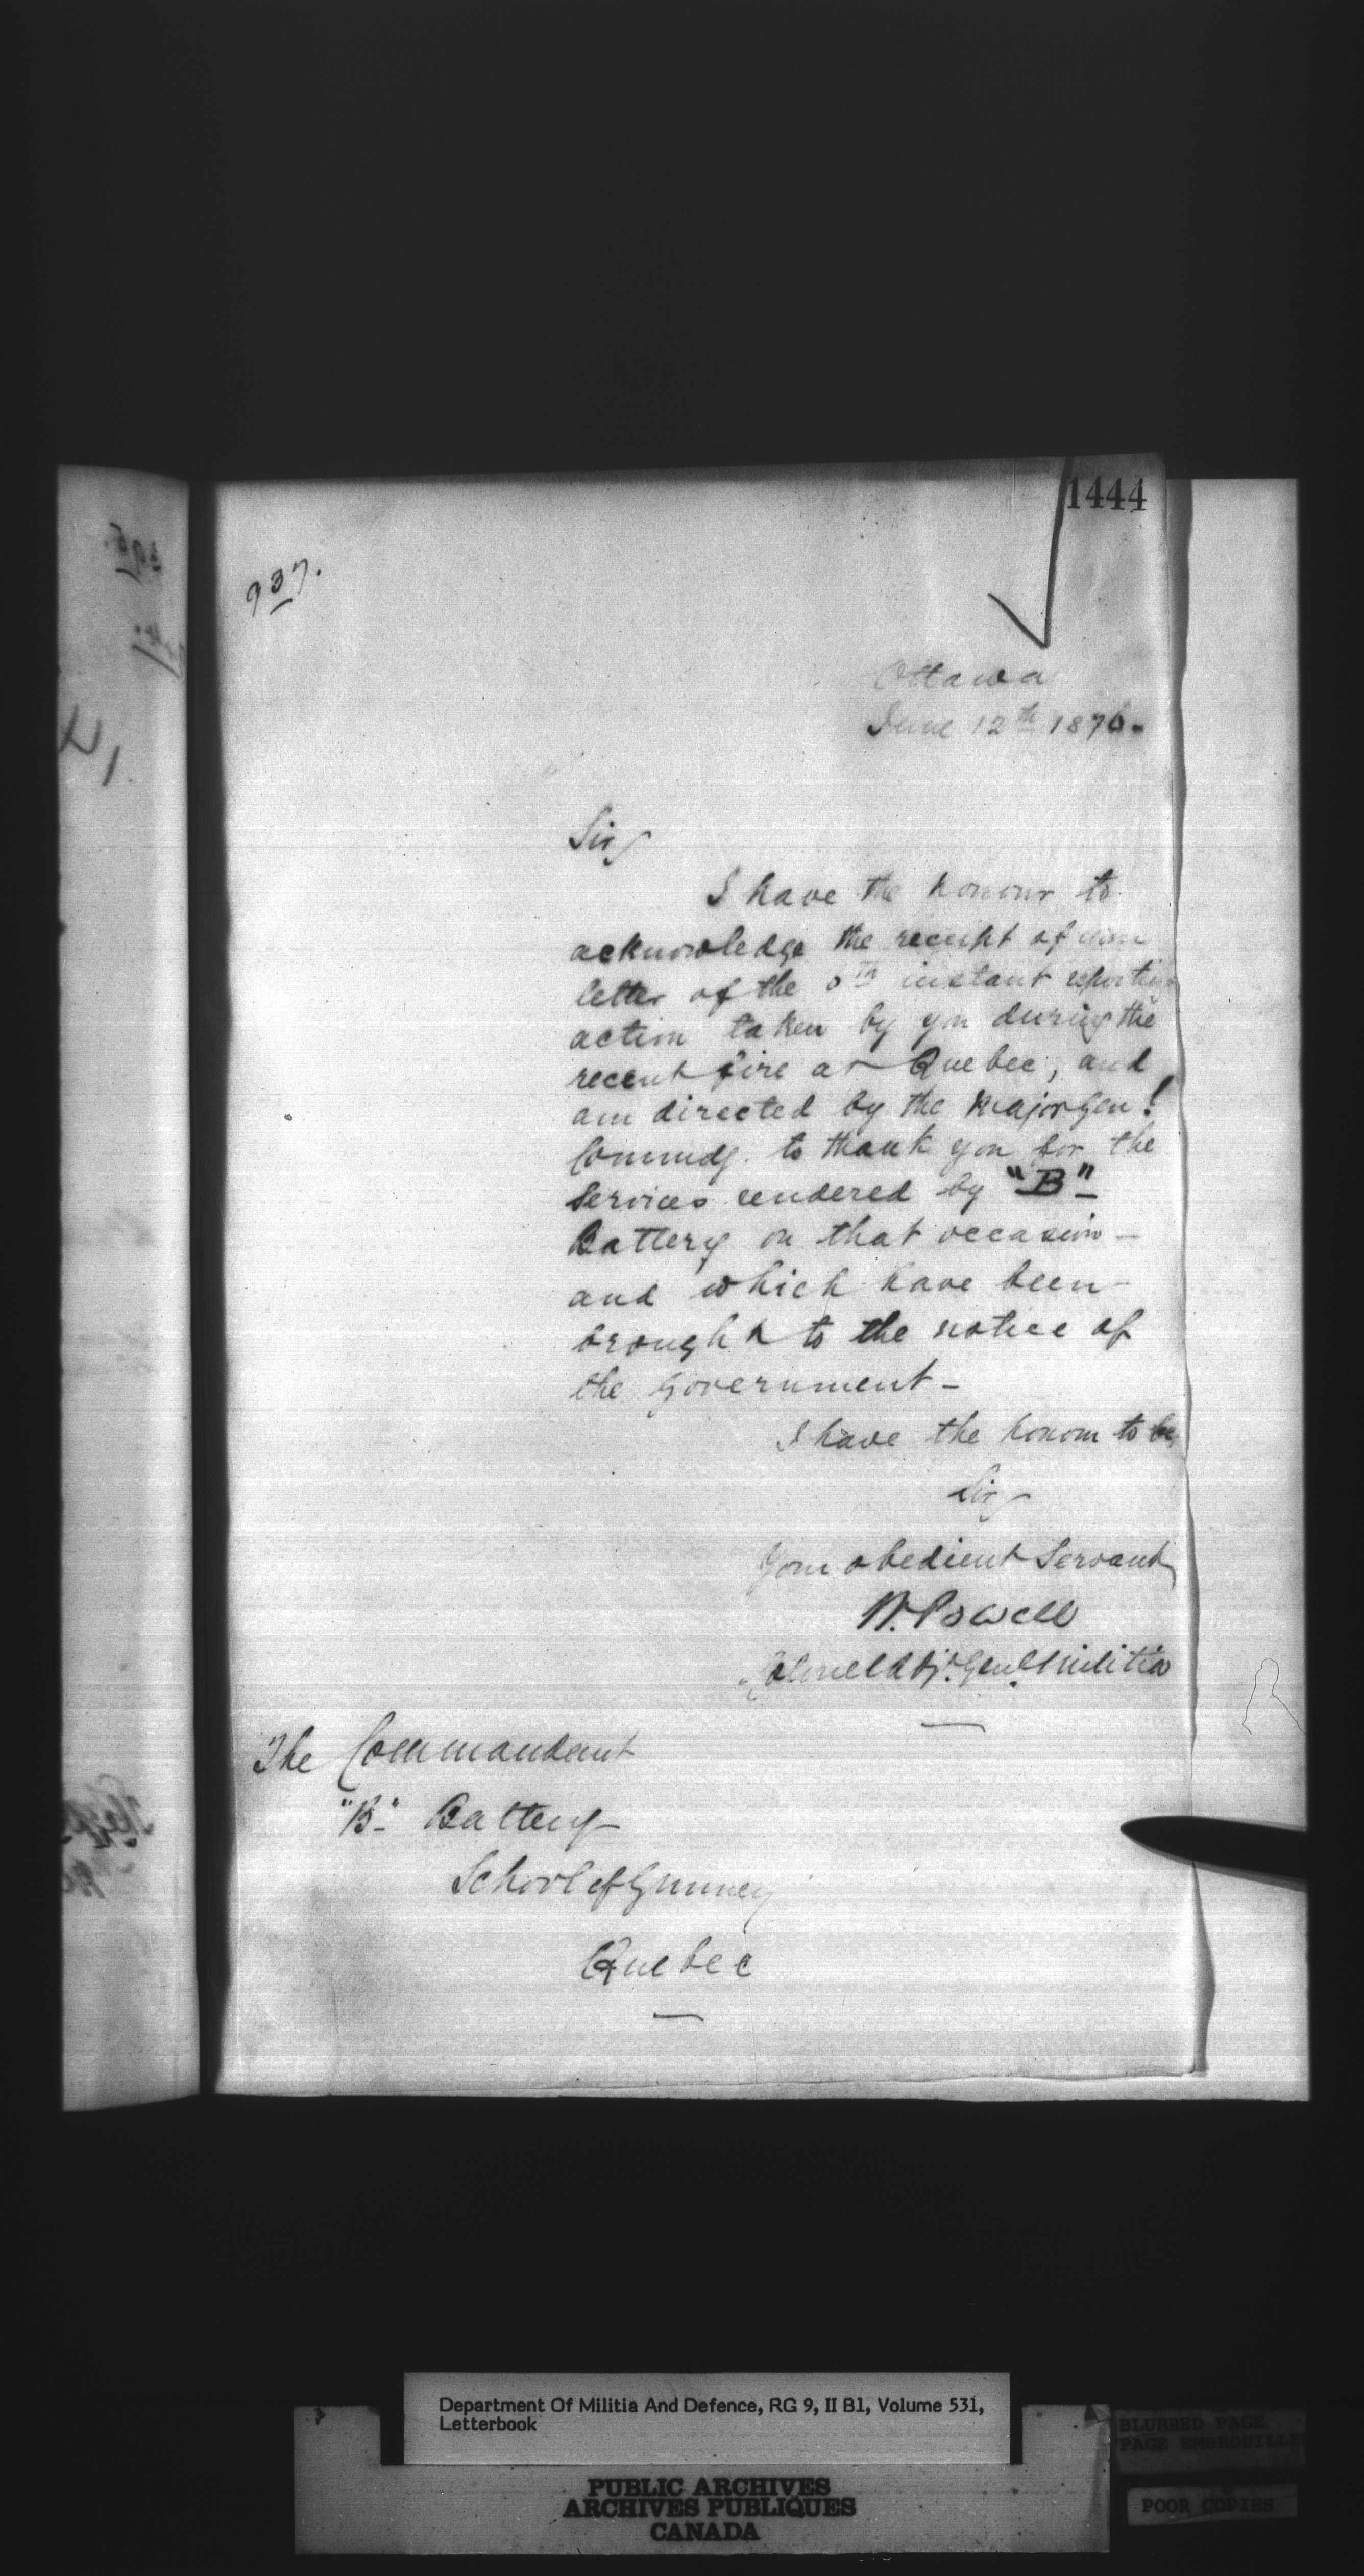 1444
937.
Ottawa
June 12th 1876.
Sir,
I have the honour to
acknowledge the receipt of your
letter of the instant reporting
action taken by you during the
recent fire at Quebec, and
am directed by the Major Genl
Commdg. to thank you for the
services rendered by "B"
Battery on that occasion —
and which have been
brought to the notice of
the Government —
I have the honour to be,
Sir,
Your obedient Servant,
W. Powell
Colonel Adjt. Genl. Militia
The Commandant
"B" Battery
School of Gunnery
Quebec
Department Of Militia And Defence, RG 9, II B1, Volume 531,
Letterbook
PUBLIC ARCHIVES
ARCHIVES PUBLIQUES
CANADA
BLURRED PAGE
PAGE EMBROUILLEE
POOR COPIES